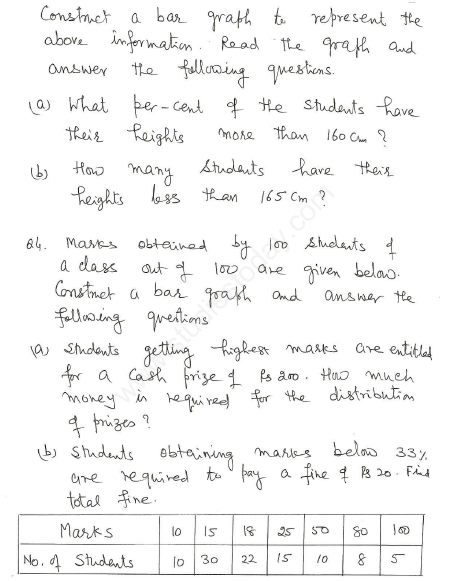 Construct a bar graph to represent the
above information. Read the graph and
answer the following questions.
(a) What per-cent of the students have
their heights more than 160 cm ?
(b) How many students have their
heights less than 165 cm ?
Q4. Marks obtained by 100 students of
a class out of 100 are given below.
Construct a bar graph and answer the
following questions
(a) Students getting highest marks are entitled
for a cash prize of Rs 200. How much
money is required for the distribution
of prizes ?
(b) Students obtaining marks below 33%
are required to pay a fine of Rs 20. Find
total fine.
Marks 10 15 18 25 50 80 100
No. of Students 10 30 22 15 10 8 5